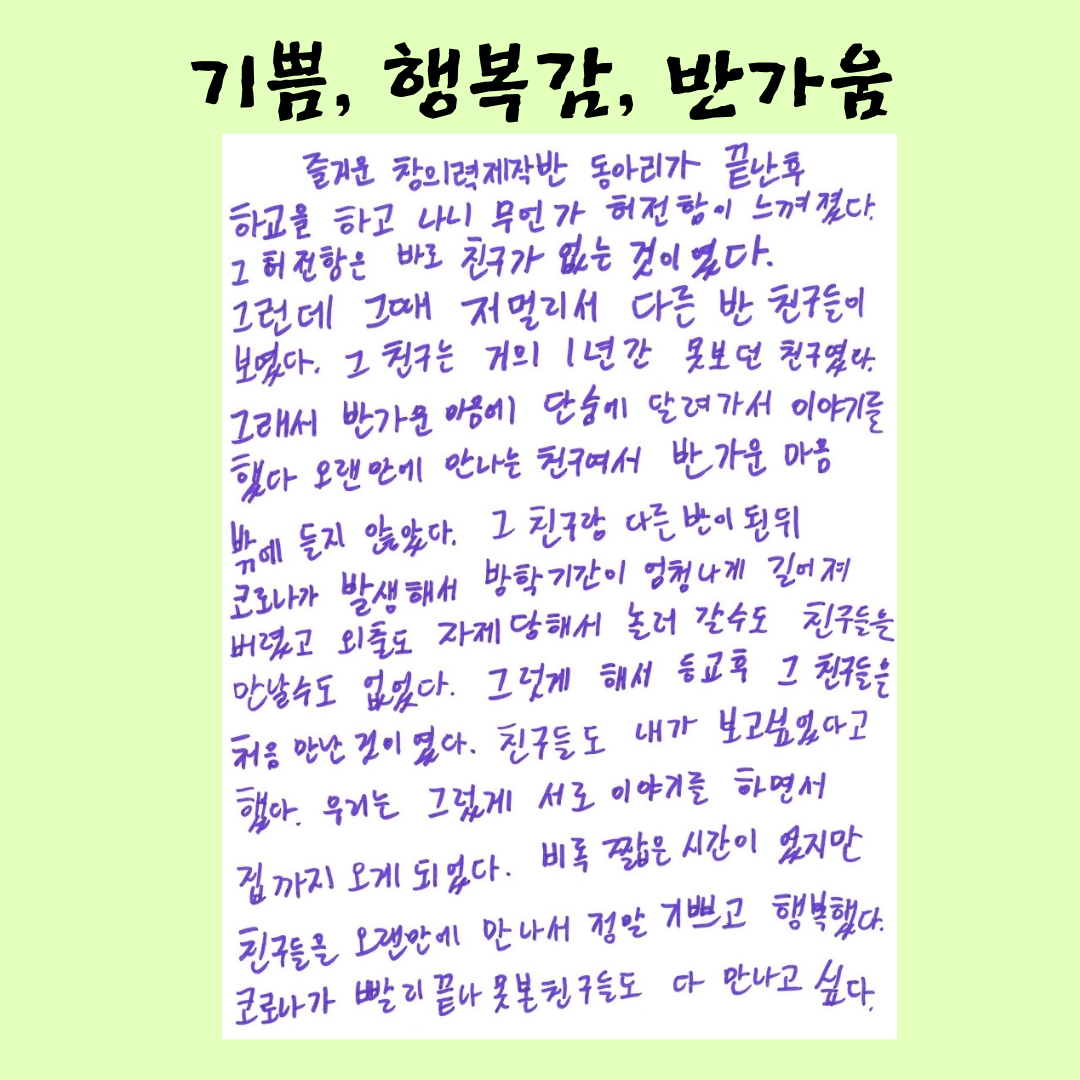 기쁨, 행복감, 반가움
즐거운 창의력제작반 동아리가 끝난후
하교을 하고 나니 무언가 허전함이 느껴졌다.
그 허전함은 바로 친구가 없는 것이 였다.
그런데 그때 저멀리서 다른 반 친구들이
보였다. 그 친구는 거의 1년간 못보던 친구였다.
그래서 반가운 마음에 단숨에 달려가서 이야기를
했다 오랜만에 만나는 친구여서 반가운 마음
밖에 들지 않았다. 그 친구랑 다른 반이 된 뒤
코로나가 발생해서 방학기간이 엄청나게 길어져
버렸고 외출도 자제 당해서 놀러 갈수도 친구들을
만날수도 없었다. 그렇게 해서 등교후 그 친구들을
처음 만난 것이 였다. 친구들도 내가 보고싶었다고
했다. 우리는 그렇게 서로 이야기를 하면서
집까지 오게 되었다. 비록 짧은 시간이 었지만
친구들을 오랜만에 만나서 정말 기쁘고 행복했다.
코로나가 빨리 끝나 못본친구들도 다 만나고 싶다.